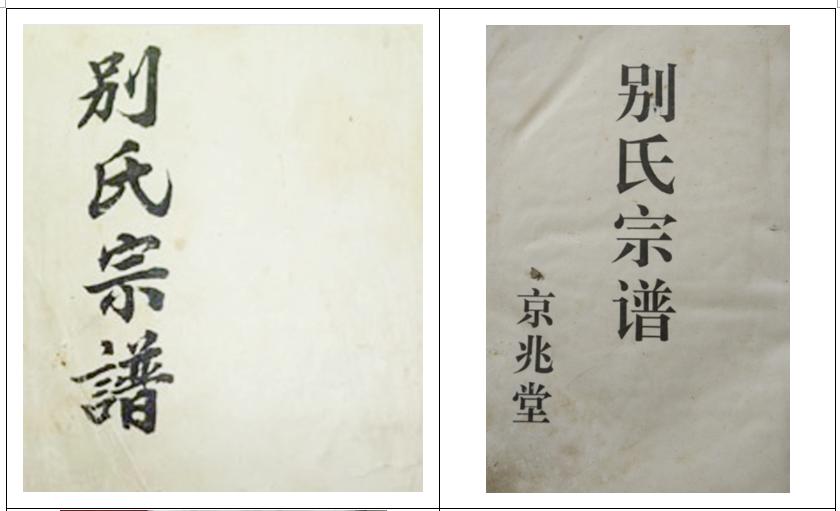 别氏宗譜
别氏宗谱
京兆堂